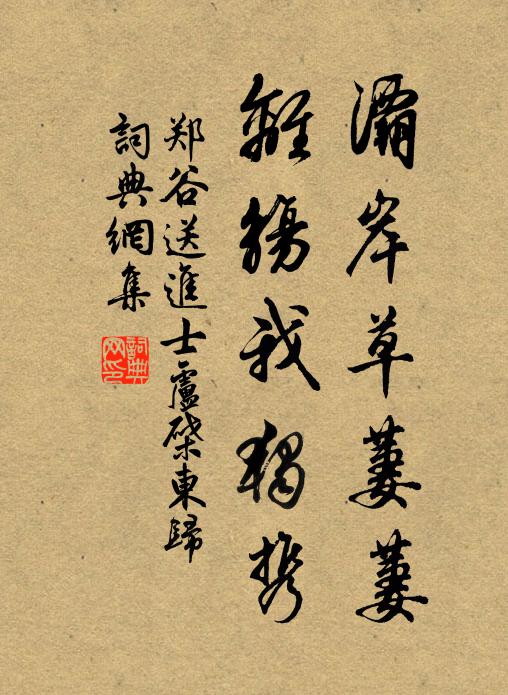 灞岸草萋萋
離觴我獨携
郑谷送進士盧棨東歸
詞典網集
詞典
网印